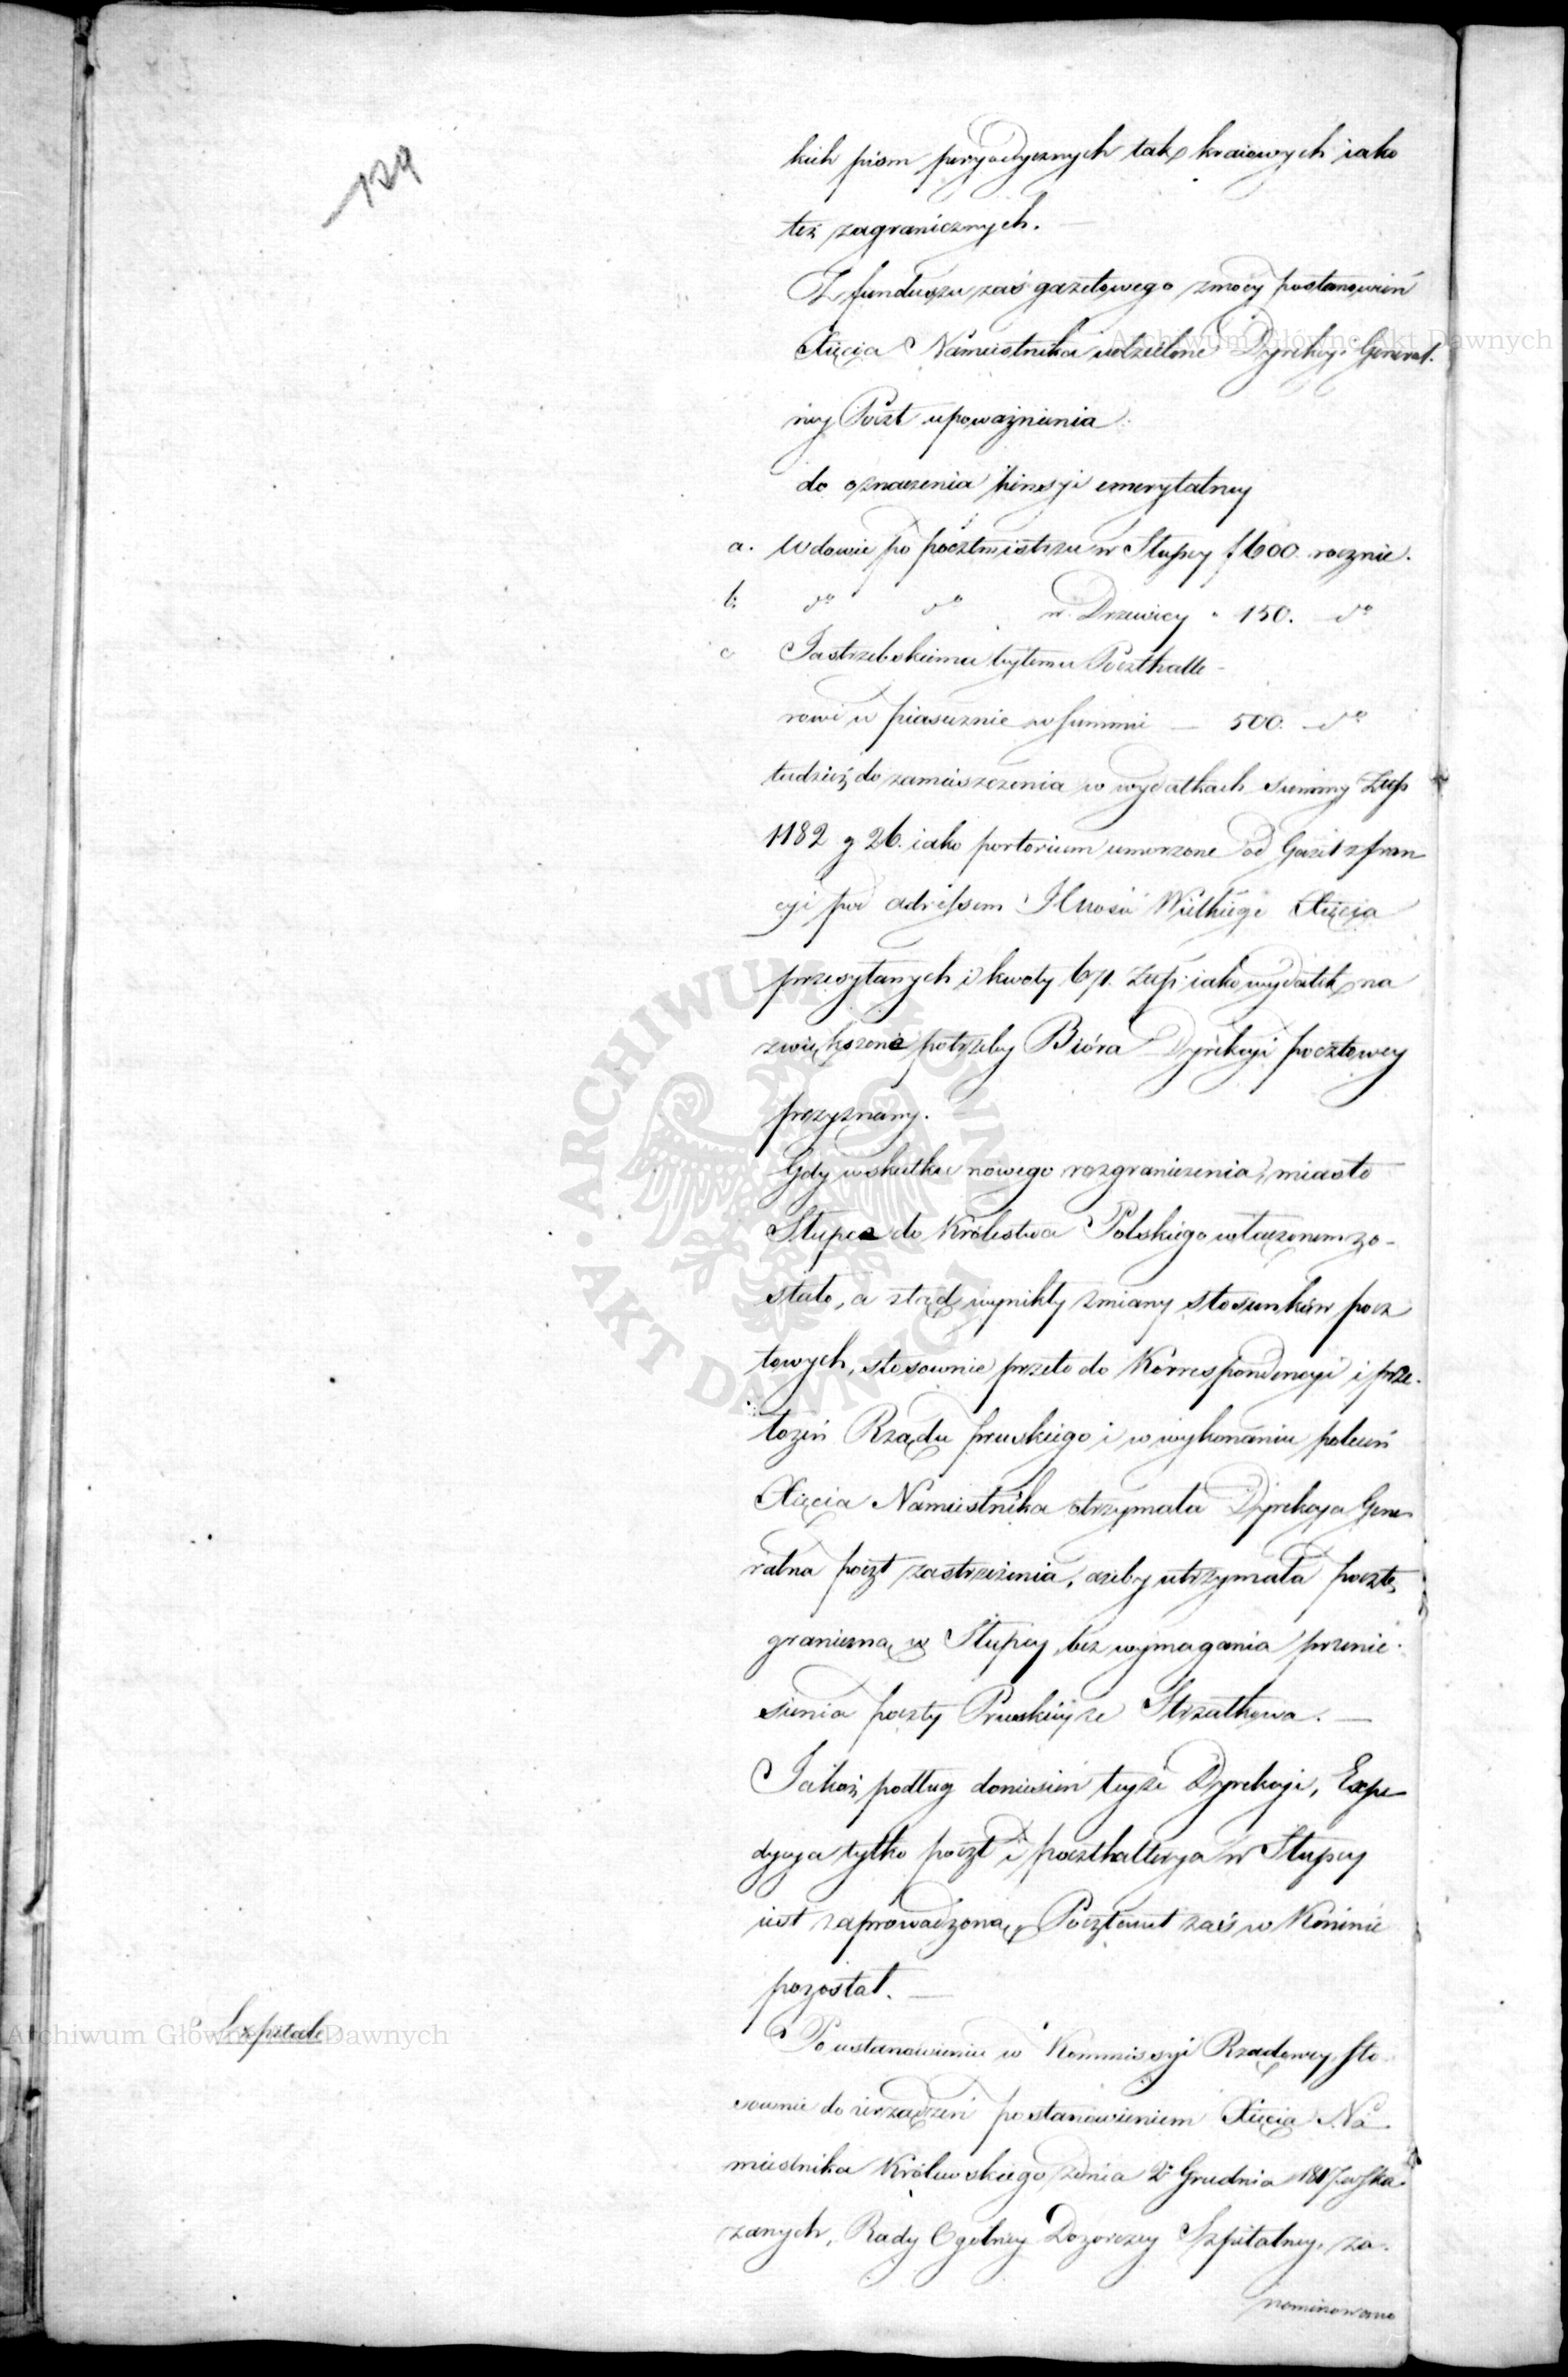 129
kich pism peryodycznych tak kraiowych iako
też zagranicznych. —
Z funduszu zaś gazetowego zmocy postanowień
Xięcia Namiestnika udzielone Dyrekcyi General.
ney Poczt upoważnienia
do oznaczenia pensyi emerytalney
a. Wdowie po pocztmistrzu w Słupcy f 600. rocznie.
b. do do w Drzewicy " 150. do
c Jastrzebskiemu byłemu Poczthalte-
rowi w piasecznie w summie — 500. do
tudzież do zamieszczenia w wydatkach summy Złp
1182 g 26. iako portorium umorzone od Gazet z fran
cyi pod adressem JCMości Wielkiego Xięcia
przesyłanych i kwoty 671. Złp. iako wydatek na
zwiększone potrzeby Bióra Dyrekcyi pocztowey
przyznany.
Gdy wskutku nowego rozgraniczenia, miasto
Słupca do Królestwa Polskiego włączonem zo-
stało, a ztąd wynikły zmiany stosunków pocz
towych, stosownie przeto do Korrespondencyi i prze-
łożeń Rządu pruskiego i w wykonaniu poleceń
Xięcia Namiestnika otrzymała Dyrekcya Gene
ralna poczt zastrzeżenia, ażeby utrzymała pocztę
graniczną w Słupcy, bez wymagania przenie-
sienia poczty Pruskiey ze Strzałkowa. —
Jakoż podług doniesień teyże Dyrekcyi, Expe
dycya tylko poczt i poczthalterya w Słupcy
iest zaprowadzoną, Pocztamt zaś w Koninie
pozostał. —
Szpitale
Po ustanowieniu w Kommissyi Rządowey, sto-
sownie do urządzeń postanowieniem Xięcia Na
miestnika Królewskiego z dnia 2 Grudnia 1817 wska
zanych, Rady Ogólney Dozorczey Szpitalney, za-
nominowano
Archiwum Główne Akt Dawnych
Archiwum Główne Akt Dawnych
ARCHIWUM GŁÓWNE AKT DAWNYCH